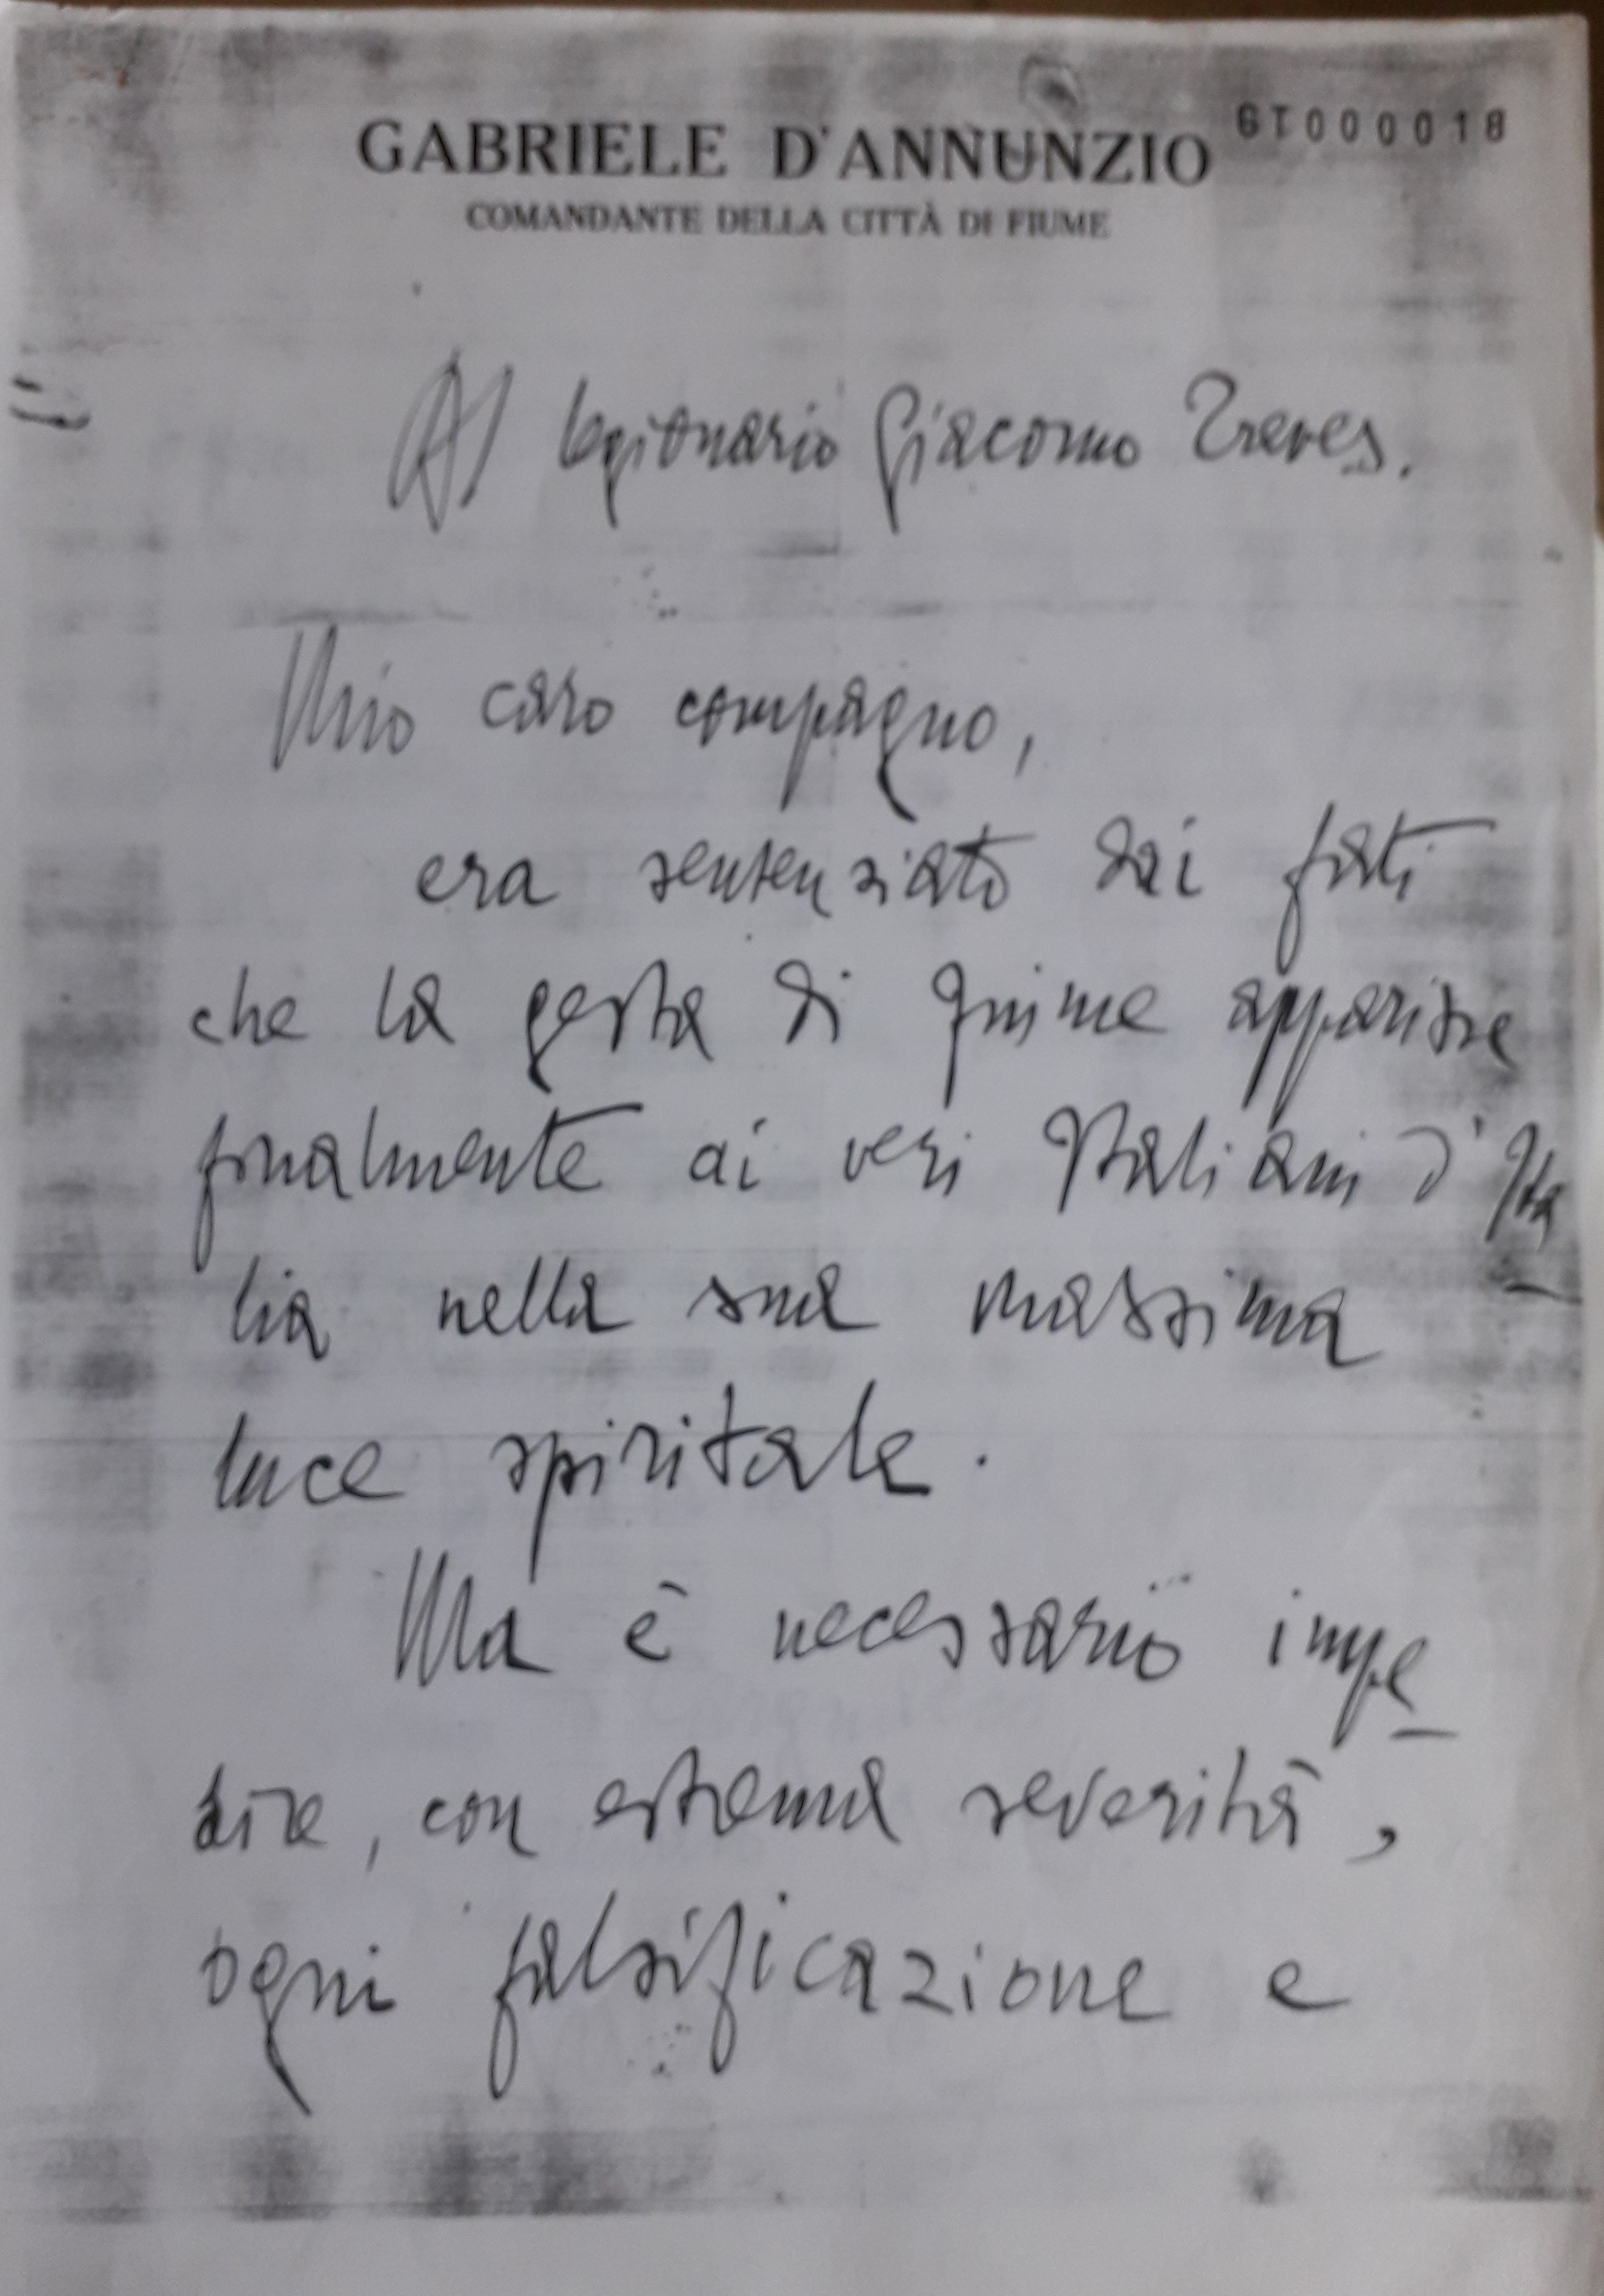 GABRIELE D'ANNUNZIO
COMANDANTE DELLA CITTÀ DI FIUME
Al legionario Giacomo Treves.
Mio caro compagno,
era sentenziato dai fati
che la gesta di Fiume apparisse
finalmente ai veri Italiani d'Ita
lia nella sua massima
luce spiritale.
Ma è necessario impe
dire, con estrema severità,
ogni falsificazione e